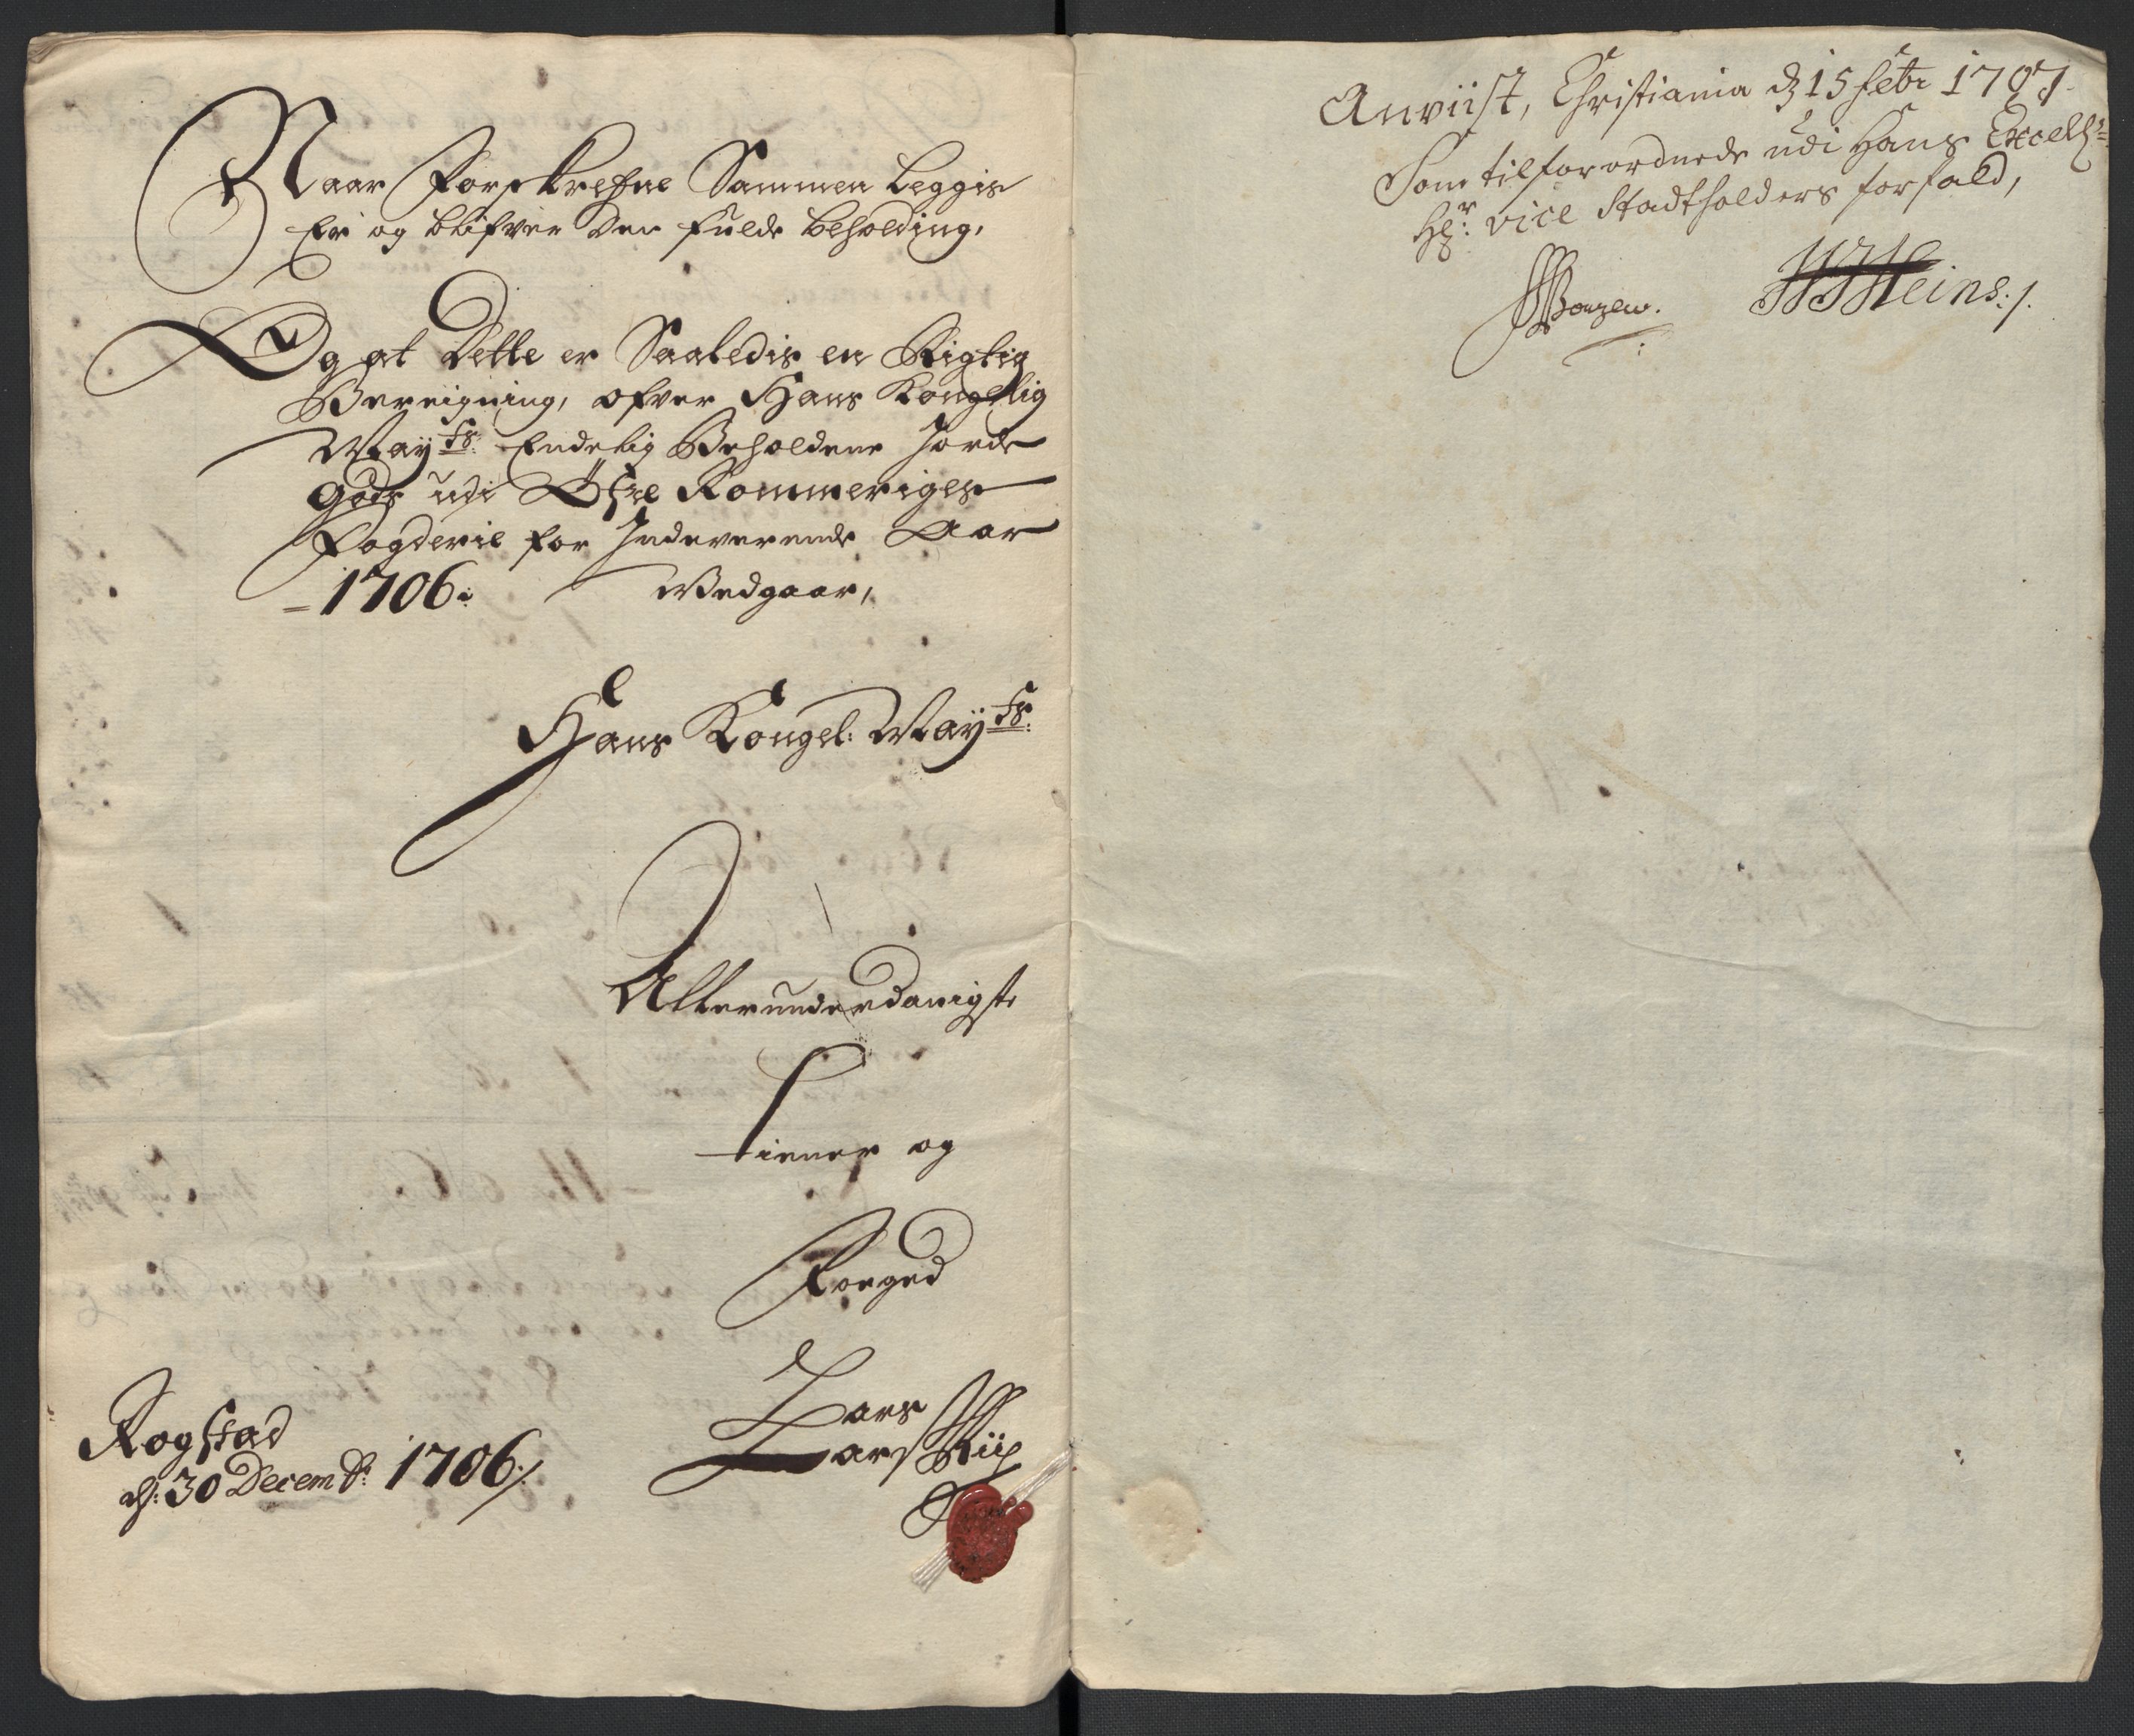 Naar Forskrefne Sammen Leggis
Er og blifver den fulde beholding,
Og at Dette er Saaledis en Rigtig
Bereigning, ofver Hans Kongellig
Mayts: Endelig Beholdene Jorde
Gods udi Öfre Rommeriges
Fogderie for Indeverende Aar
1706: Vedgaar,
Hans Kongel: Mayts:
Allerunderdanigste
tiener og
Foeged
Lars
Rogstad
d: 30 Decembr: 1706:/
Anviist, Christiania d 15 Febr 1707.
Som tilforordnede udi Hans Excell:
Hr: vice Stadtholders forfald,